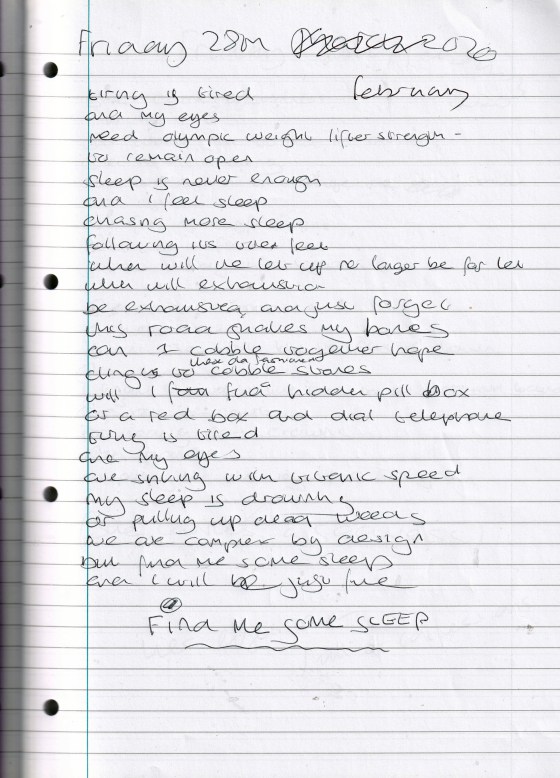 Friday 28th 2020
February
tiring is tired
and my eyes
need olympic weight lifter strength -
to remain open
sleep is never enough
and i feel sleep
chasing more sleep
following its
when will we let up no longer be
when will exhaustion
be exhausted and just forget.
this road shakes my bones
can I cobble together hope
cling to cobble stones
will I find hidden pill box
or a red box and dial telephone
tiring is tired
and my eyes
are sinking with titanic speed
my sleep is drowning
or pulling up dead weeds
we are complex by design
but find me some sleep
and i will be just fine
Find me some SLEEP